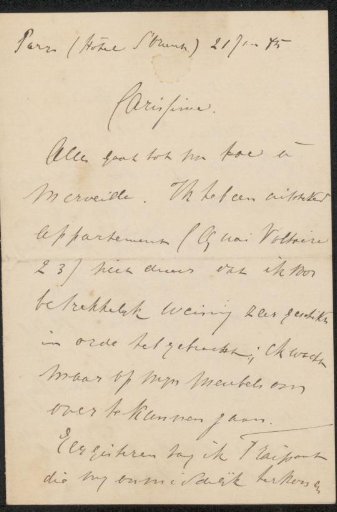 Parijs (Hôtel) 21/1 - 85
Carissime.
Alles gaat tot nu toe à
merveille. Ik heb een uitstekend
appartement (Quai Voltaire
23) dat ik voor
betrekkelijk weinig zeer
in orde heb gebracht; ik wacht
maar op mijn meubels om
over te kunnen gaan.
Eergisteren zag ik
die mij onmiddelijk